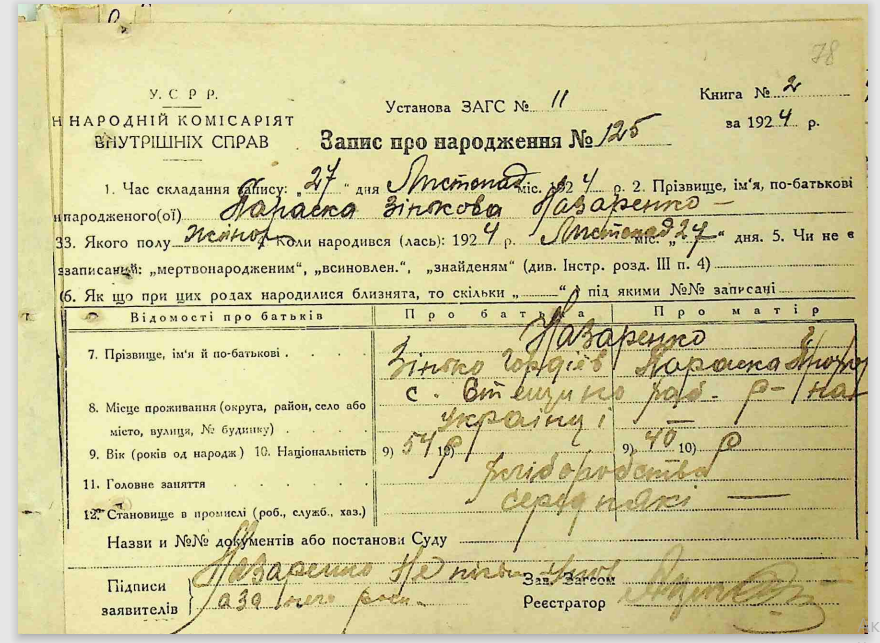 78
У. С. Р. Р.
НАРОДНІЙ КОМІСАРІЯТ
ВНУТРІШНІХ СПРАВ
Установа ЗАГС № 11
Книга № 2
за 1924 р.
Запис про народження № 125
1. Час складання запису: „27“ дня Листопад міс. 1924 р. 2. Прізвище, ім'я, по-батькові
народженого(ої) Параска Зінькова Назаренко –
3. Якого полу жіноч 4. Коли народився (лась): 1924 р. Листопад міс. „27“ дня. 5. Чи не є
записаний: „мертвонародженим“, „всиновлен.“, „знайденям“ (див. Інстр. розд. III п. 4)
6. Як що при цих родах народилися близнята, то скільки „ “ і під якими №№ записані
Відомості про батьків Про батька Про матір
Назаренко
7. Прізвище, ім'я й по-батькові . . . . Зінько Гордіїв Параска
с.
8. Місце проживання (округа, район, село або
місто, вулиця, № будинку) . . . . українці –
9. Вік (років од народж) 10. Національність 9) 54 10) 9) 40 10)
11. Головне заняття . . . . хліборобства
12. Становище в промислі (роб., служб., хаз.) середняки –
Назви и №№ документів або постанови Суду
Підписи
заявителів
Назаренко
Зав. Загсом
Реєстратор